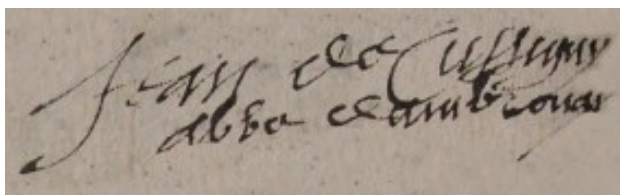 Jean de Cussigny
abbé d'ambronay